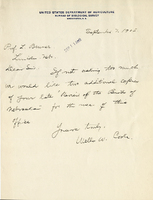 UNITED STATES DEPARTMENT OF AGRICULTURE
BUREAU OF BIOLOGICAL SURVEY
WASHINGTON, D.C.
September 3, 190
Prof. L. Bruner
Lincoln Neb.
Dear Sir: If not asking too much
we would like two additional copies
of your late "Review of the Birds of
Nebraska" for the use of this
Office.
Yours truly,
Wells W. Cooke